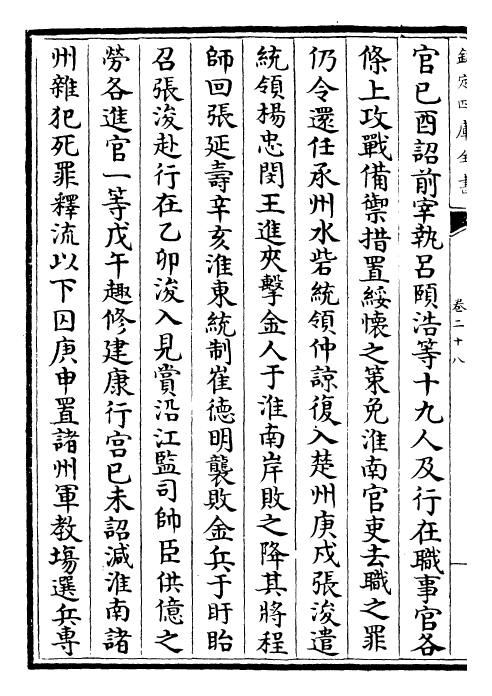 欽定四庫全書
卷二十八
官己酉詔前宰執呂頤浩等十九人及行在職事官各
條上攻戰備禦措置綏懷之策免淮南官吏去職之罪
仍令還任承州水砦統領仲諒復入楚州庚戌張浚遣
統領楊忠閔王進夾擊金人于淮南岸敗之降其將程
師回張延壽辛亥淮東統制崔德明襲敗金兵于盱眙
召張浚赴行在乙卯浚入見賞沿江監司帥臣供億之
勞各進官一等戊午趣修建康行宮己未詔減淮南諸
州雜犯死罪釋流以下囚庚申置諸州軍教塲選兵專